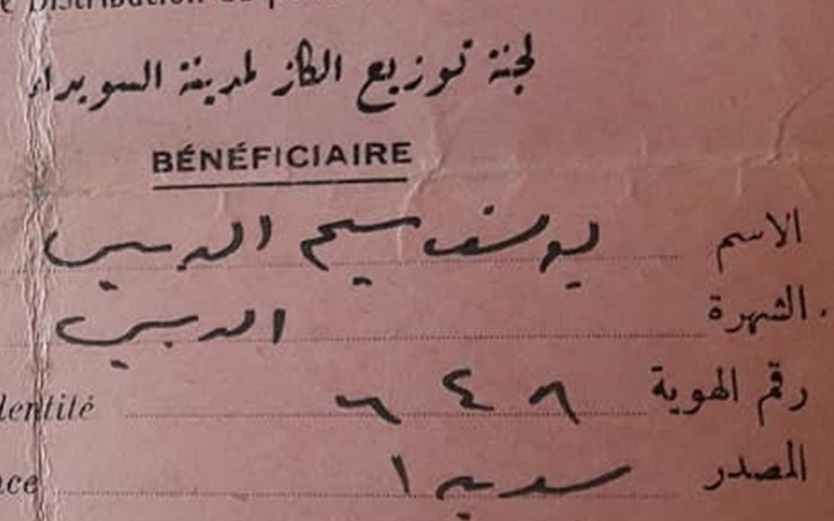 Distribution
لجنة توزيع الكاز لمدينة السويداء
BÉNÉFICIAIRE
الاسم يوسف سليم الدبيسي
الشهرة الدبيسي
رقم الهوية ٨ ٤ ٦ dentité
المصدر سويدا